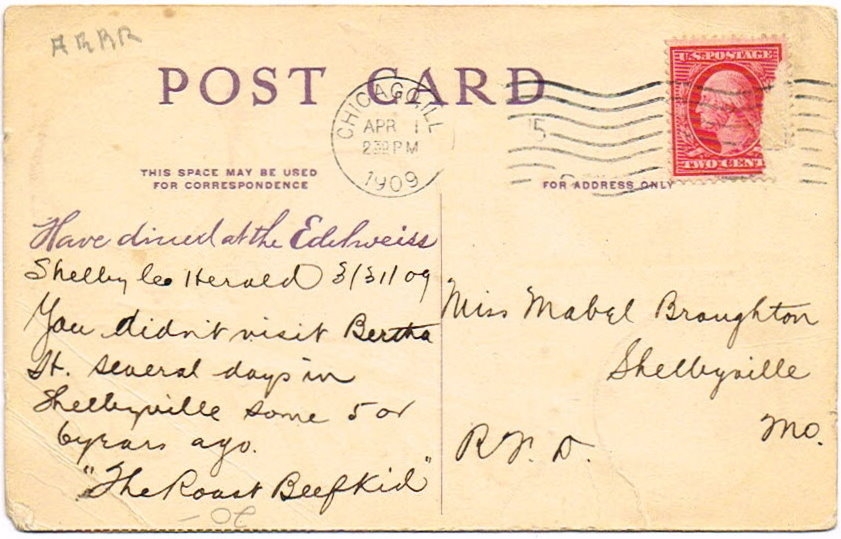 POST CARD
CHICAGO, ILL
APR 1
2 30 PM
1909
5
U.S. POSTAGE
TWO CENT
THIS SPACE MAY BE USED
FOR CORRESPONDENCE
FOR ADDRESS ONLY
Have dined at the Edelweiss
Shelby Co Herald 3/31/09
You didn't visit Bertha
St. several days in
Shelbyville some 5 or
6 years ago.
"The Roast Beef Kid"
Miss Mabel Broughton
Shelbyville
Mo.
R.F.D.